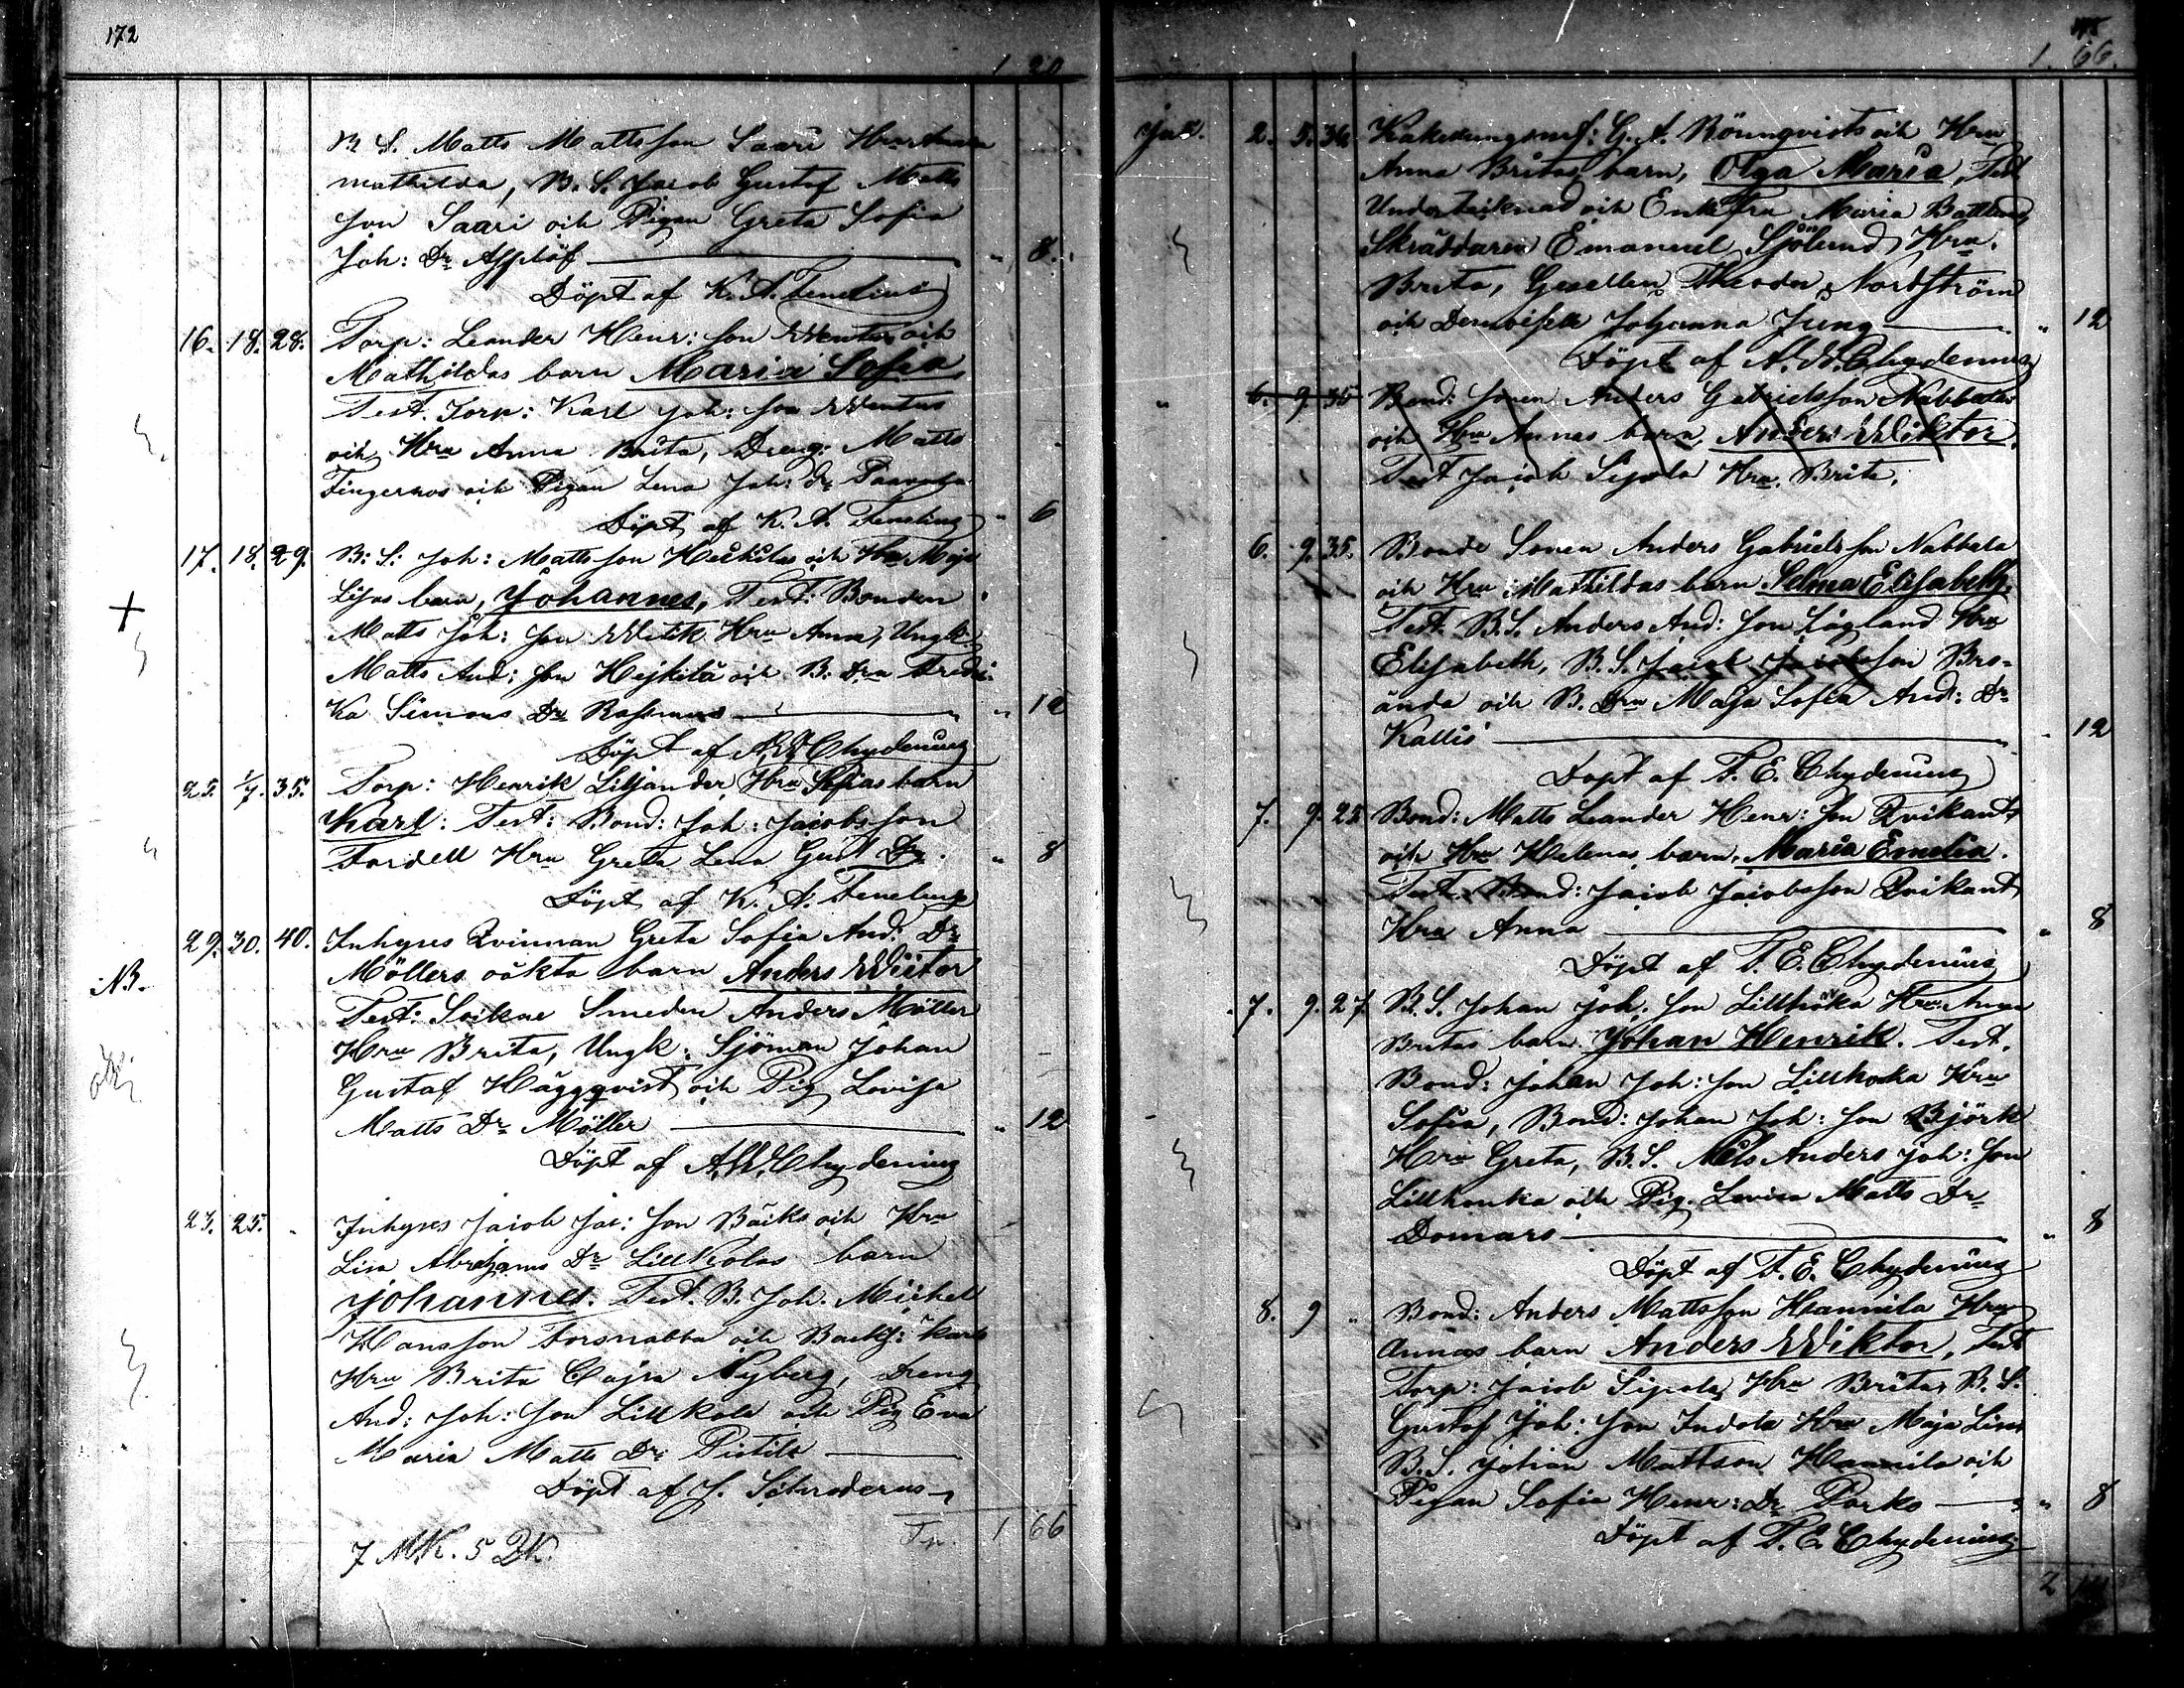 172
1 20
B. S. Matts Mattsson Saari Hru Anna
Mathilda, B. S. Jacob Gustaf Matts
son Saari och Pigan Greta Sofia
Joh: Dr Applöf — " 8.
Döpt af K. A. Fenelius
16. 18. 28. Torp: Leander Henr: son Wentus och
Mathildas barn Maria Sofia
Test. Torp: Karl Joh: son Wentus
och Hru Anna Brita, Dreng: Matts
Fingerroos och Pigan Lena Joh: Dr
Döpt af K. A. Fenelius " 6
17. 18. 29. B: S: Joh: Mattsson Heikilas och Hru Maja
Lisas barn, Johannes, Test: Bonden
Matts Joh: son Witik Hru Anna, Ungk:
Matts And: son Hejkilä och B. Drn Fredri-
ka Simons Dr Rasmus — " 12
Döpt af A. W. Chydenius
25. 1/7. 35. Torp: Henrik Liljander Hru Sofias barn
Karl: Test: Bond: Joh: Jacobsson
Fordell Hru Greta Lena Gust Dr. " 8
Döpt af K. A. Fenelius
29. 30. 40. Inhyses Qvinnan Greta Sofia And: Dr
NB. Möllers oäkta barn Anders Wictor
Test: Sockne Smeden Anders Möller
Hru Brita, Ungk: Sjöman Johan
Gustaf Häggqvist och Pig Lovisa
Matts Dr Möller — " 12
Döpt af A. W. Chydenius
23. 25. " Inhyses Jacob Jac: son Bäcks och Hru
Lisa Abrahams Dr Lillkolas barn
Johannes. Test. B. Joh. Michel
Hansson Forsnabba och Backs: Karls
Hru Brita Cajsa Nyberg, Dreng
And: Joh: son Lillkola och Pig Eva
Maria Matts Dr —
Döpt af J. Schroderus
7 MK. 5 QK. Tr. 1 66
1. 66.
Jan. 2. 5. 34 G. A. Rönnqvists och Hru
Anna Britas barn, Olga Maria, Test
Undertecknad och Enkefru Maria
Skräddaren Emanuel Sjölund Hru.
Brita, Gesellen Theodor Nordström
och Demoiselle Johanna Jung — " 12
Döpt af A. W. Chydenius
" 6. 9. 35 Bond: sonen Anders Gabrielsson Nabbala
och Hru Annas barn, Anders Wiktor.
Test Jacob Sipola Hru. Brita.
6. 9. 35. Bonde Sonen Anders Gabrielsson Nabbala
och Hru Mathildas barn Selma Elisabeth.
Test. B. S. Anders And: son Lågland Hru
Elisabeth, B. S. Jacob Jacobsson Bro-
ända och B. Drn Maja Sofia And: Dr
Kallis — " 12
Döpt af F. E. Chydenius
7. 9. 22 Bond: Matts Leander Henr: son Qvikant
och Hru Helenas barn, Maria Emelia.
Test. Bond: Jacob Jacobsson Qvikant
Hru Anna — " 8
Döpt af F. E. Chydenius
7. 9. 27 B. S. Johan Joh: son Lillhöka Hru Anna
Britas barn. Johan Henrik. Test.
Bond: Johan Joh: son Lillhonka Hru
Sofia, Bond: Johan Joh: son Björk
Hru Greta, B. S. Nils Anders Joh: son
Lillhonka och Pig. Lovisa Matts Dr
Domars — " 8
Döpt af F. E. Chydenius
8. 9 " Bond: Anders Mattsson Hannila Hru
Annas barn Anders Wiktor, Test
Torp: Jacob Sipola, Hru Britas B. S.
Gustaf Joh: son Indola Hru Maja Lisas
B. S. Johan Mattson Hannila och
Pigan Sofia Henr: Dr Porko — " 8
Döpt af F. E. Chydenius
2